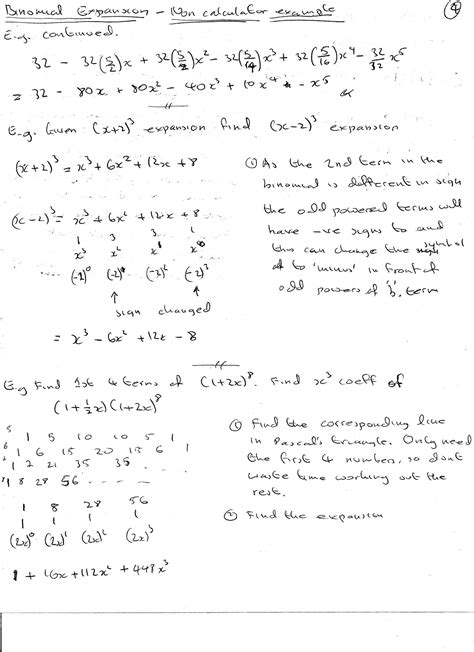 Binomial Expansion – Non calculator example
4
E.g. continued.
32 - 32(5/2)x + 32(5/2)x² - 32(5/4)x³ + 32(5/16)x⁴ - 32/32 x⁵
= 32 - 80x + 80x² - 40x³ + 10x⁴ - x⁵
E.g. Given (x+2)³ expansion find (x-2)³ expansion
(x+2)³ = x³ + 6x² + 12x + 8
(x-2)³ = x³ + 6x² + 12x + 8
1 3 3 1
x³ x² x¹ x⁰
(-2)⁰ (-2)¹ (-2)² (-2)³
↑ ↑
sign changed
= x³ - 6x² + 12x - 8
① As the 2nd term in the
binomial is different in sign
the odd powered terms will
have -ve signs to and
this can change the symbol
of to 'minus' in front of
odd powers of 'b' term
E.g Find 1st 4 terms of (1+2x)⁸. Find x³ coeff of
(1+½x)(1+2x)⁸
5 1 5 10 10 5 1
6 1 6 15 20 15 6 1
7 1 7 21 35 35 ...
1 8 28 56 ...
1 8 28 56
1 1 1 1
(2x)⁰ (2x)¹ (2x)² (2x)³
1 + 16x + 112x² + 448x³
① Find the corresponding line
in Pascal's triangle. Only need
the first 4 numbers, so dont
waste time working out the
rest.
② Find the expansion